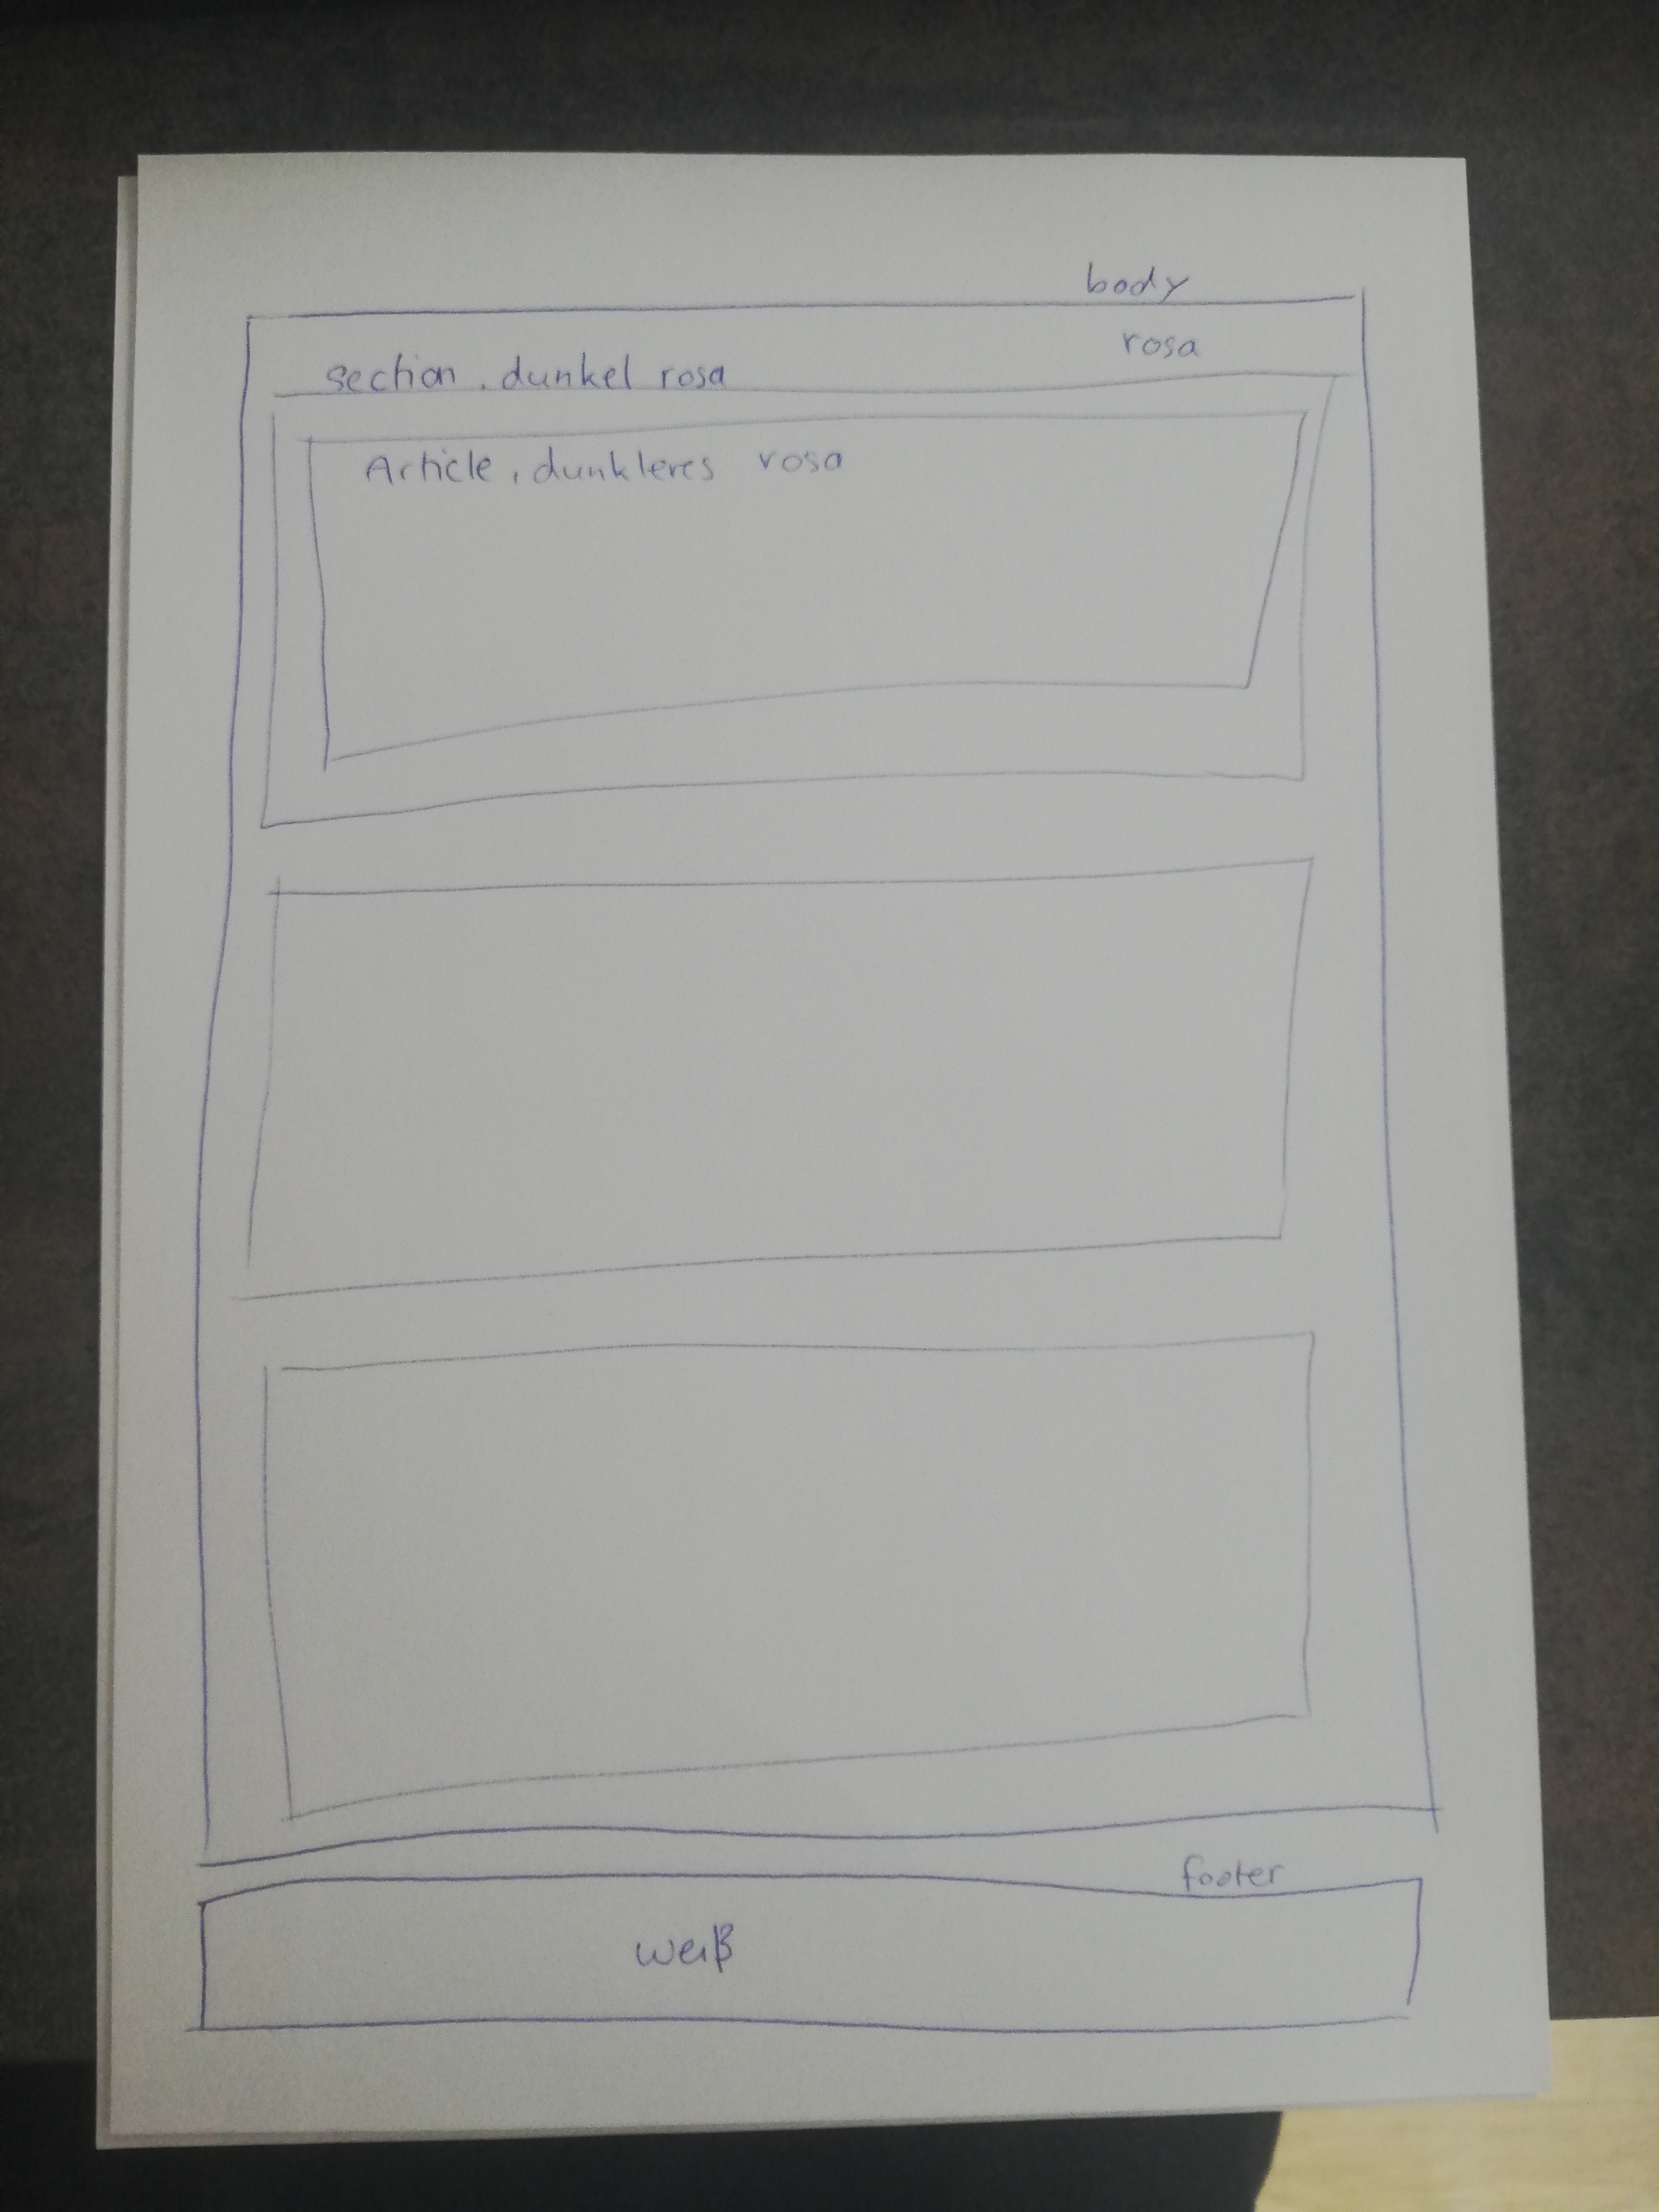 body
rosa
section, dunkel rosa
Article, dunkleres rosa
footer
weiß